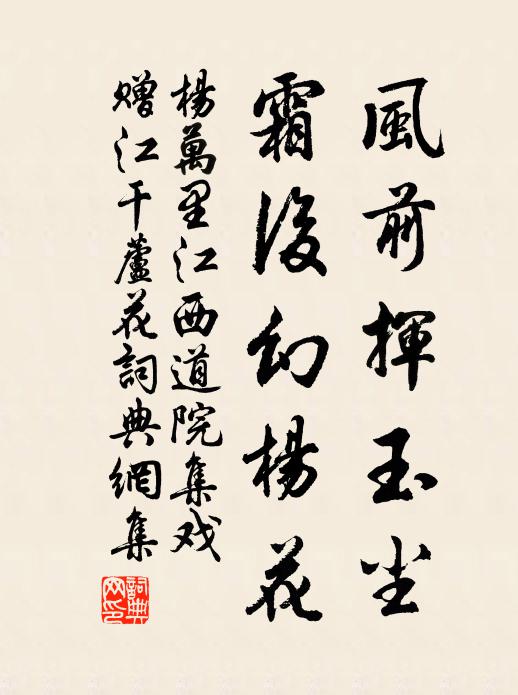 風前揮玉尘
霜後幻楊花
楊萬里江西道院集戏
贈江干蘆花詞典網集
詞典
网印